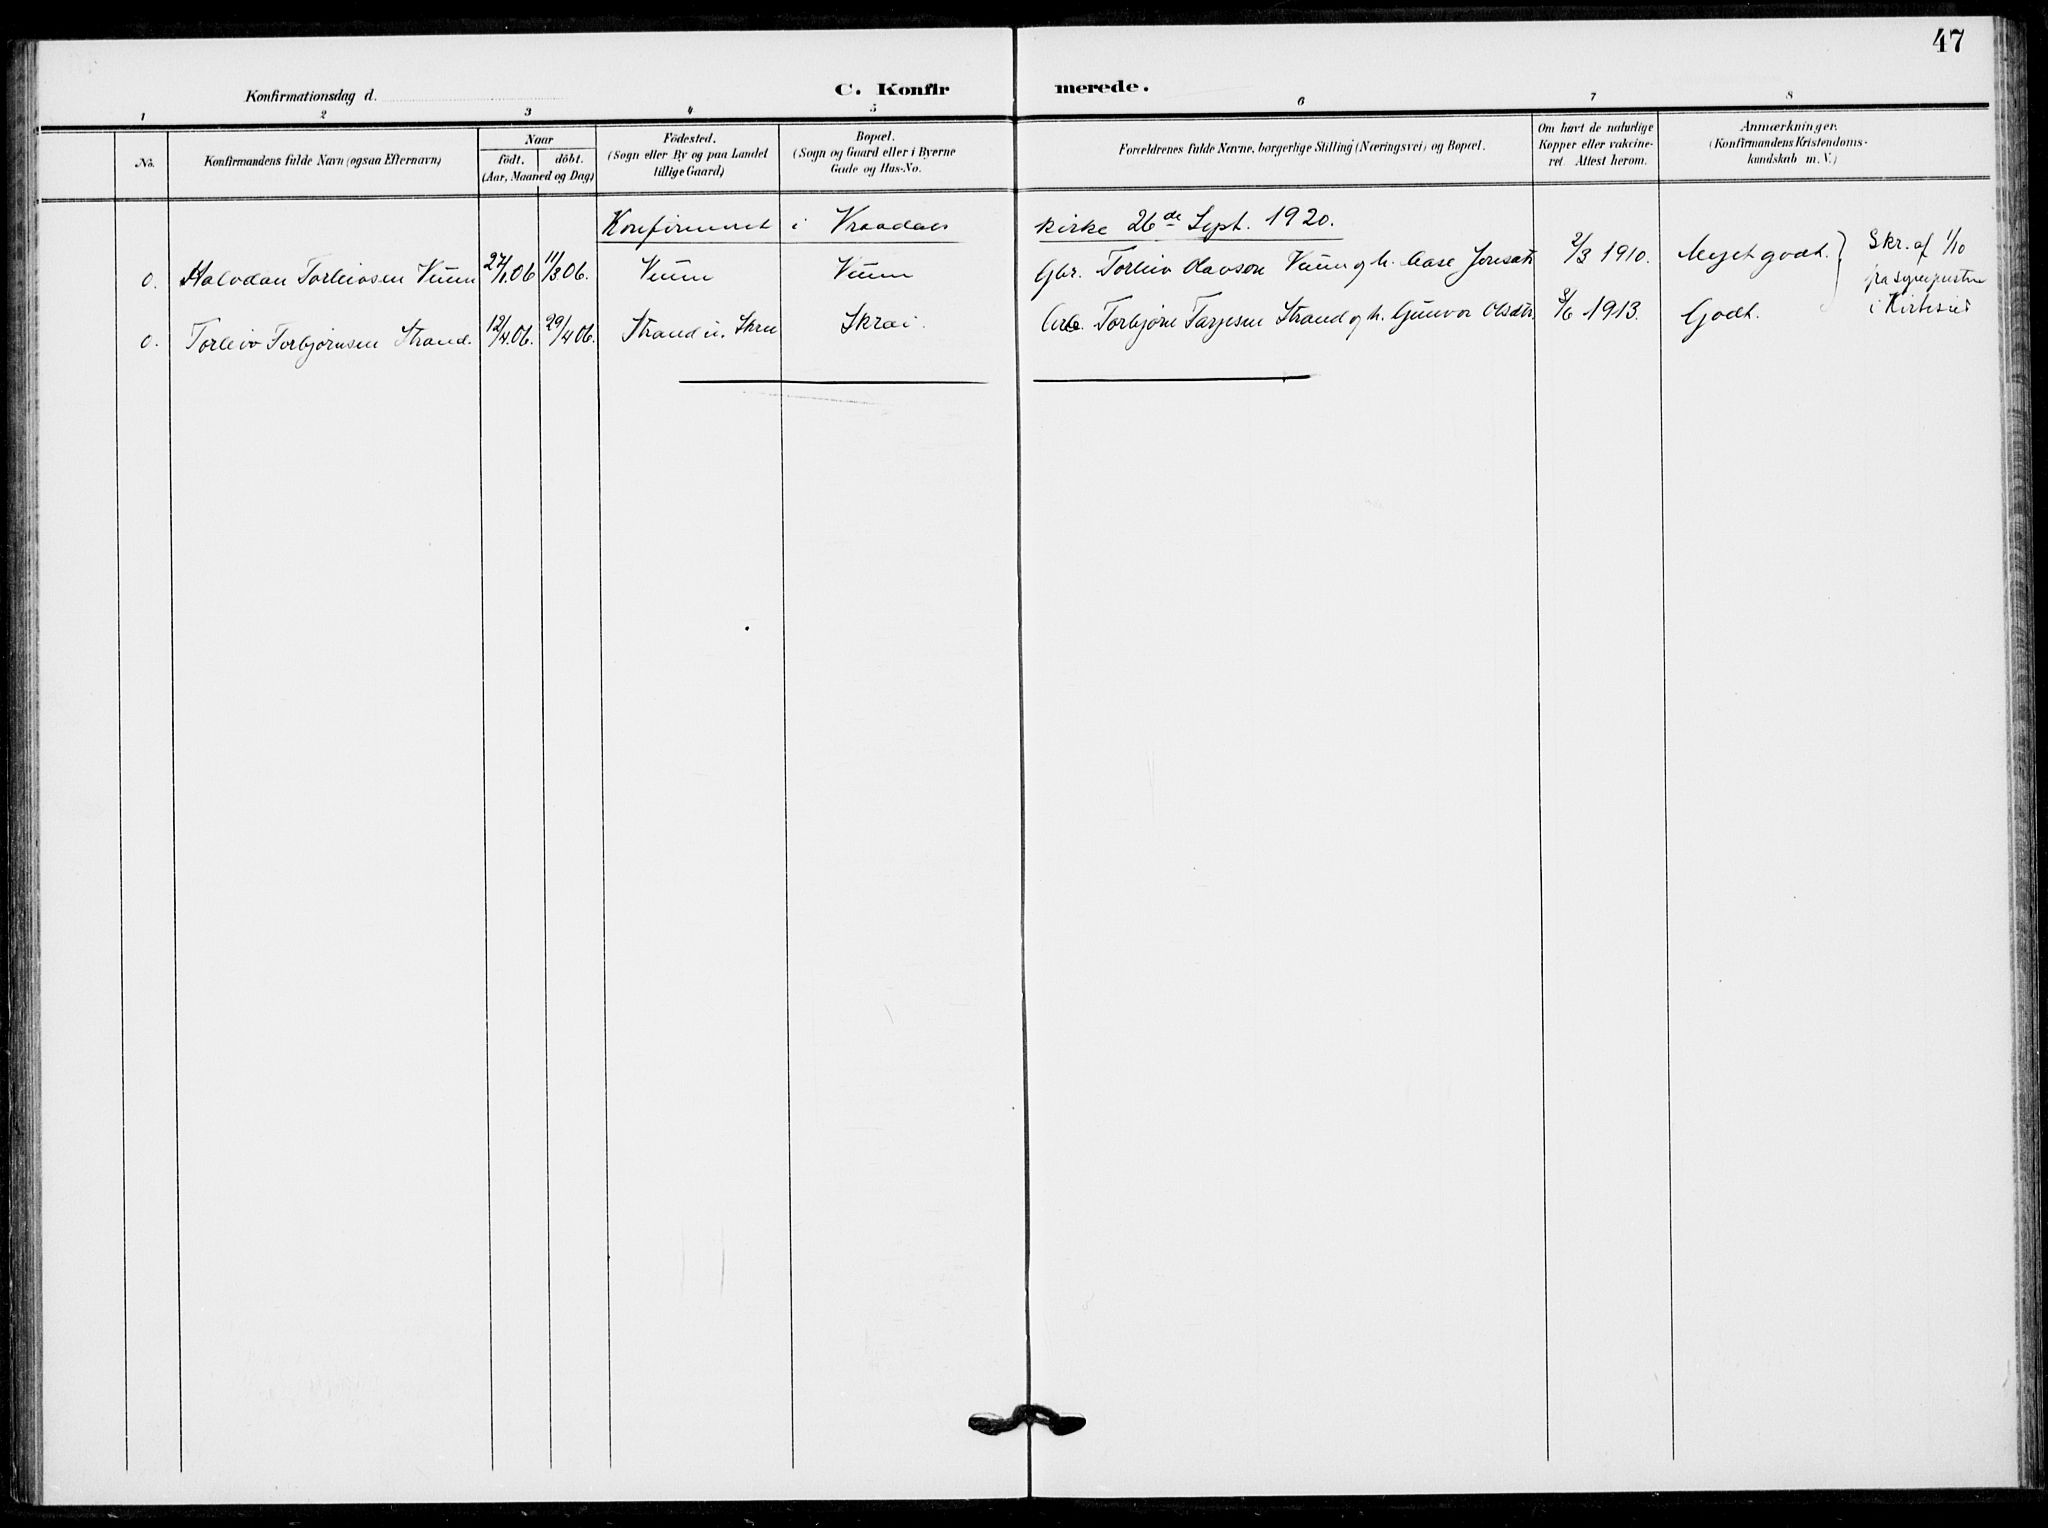 47
Konfirmationsdag d.
C. Konfirmerede.
1 2 3 4 5 6 7 8
No.
Konfirmandens fulde Navn (ogsaa Efternavn)
Naar
födt. döbt.
(Aar, Maaned og Dag)
Födested.
(Sogn eller By og paa Landet
tillige Gaard)
Bopæl.
(Sogn og Gaard eller i Byerne
Gade og Hus-No.
Forældrenes fulde Navne, borgerlige Stilling (Næringsvei) og Bopæl.
Om havt de naturlige
Kopper eller vakcine-
ret. Attest herom.
Anmærkninger.
(Konfirmandens Kristendoms-
kundskab m. V.)
Konfirmeret i Vraadals kirke 26de Sept. 1920.
0. Halvdan Torleivsen Veum 27/1 06 11/3 06. Veum Veum Gbr. Torleiv Olavson Veum og h. Aase Jonsdtr 2/3 1910. Meget godt.
0. Torleiv Torbjørnsen Strand. 12/4 06. 29/4 06. Strand u. Skree Skrei. Arb. Torbjørn Tarjesen Strand og h. Gunvor Olsdtr. 3/6 1913. Godt.
Skr. af 1/10
fra sogneprsten
i Kviteseid